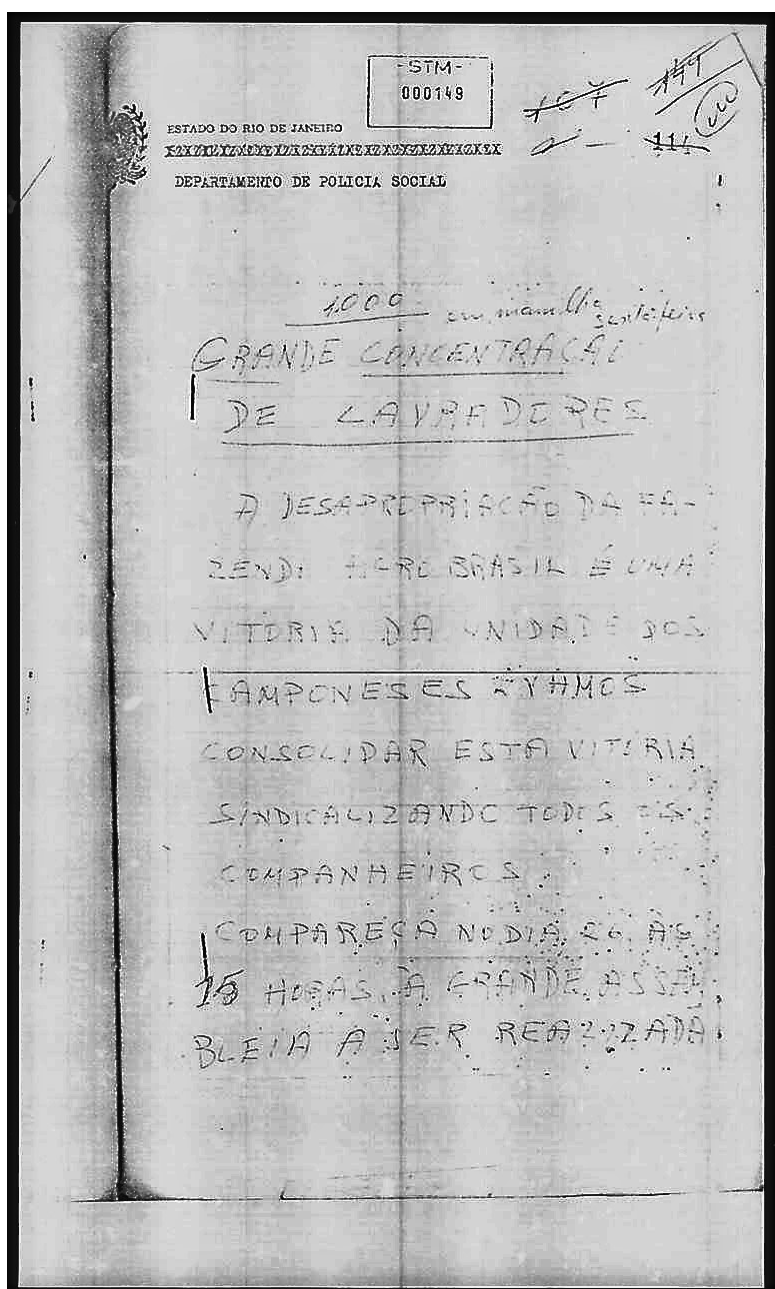 -STM-
000149
107
149
111
114
ESTADO DO RIO DE JANEIRO
DEPARTAMENTO DE POLICIA SOCIAL
1.000 em
GRANDE CONCENTRAÇÃO
DE LAVRADORES
A DESAPROPRIAÇÃO DA FA-
ZENDA AGRO BRASIL É UMA
VITORIA DA UNIDADE DOS
CAMPONESES E VAMOS
CONSOLIDAR ESTA VITORIA
SINDICALIZANDO TODOS OS
COMPANHEIROS.
COMPAREÇA NO DIA 26 AS
15 HORAS, A GRANDE ASSEM
BLEIA A SER REALIZADA